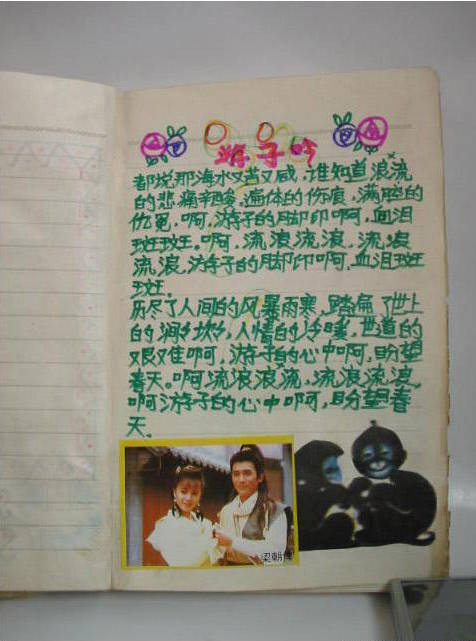 游子吟
都说那海水又苦又咸,谁知道浪流
的悲痛辛酸,遍体的伤痕,满腔的
仇冤,啊,游子的脚印啊,血泪
斑斑。啊,流浪流浪,流浪
流浪,游子的脚印啊,血泪斑
斑。
历尽了人间的风暴雨寒,踏遍了世上
的涧沟坎坎,人情的冷暖,世道的
艰难啊,游子的心中啊,盼望
春天。啊流浪浪流,流浪流浪
啊游子的心中啊,盼望春
天。
梁朝伟